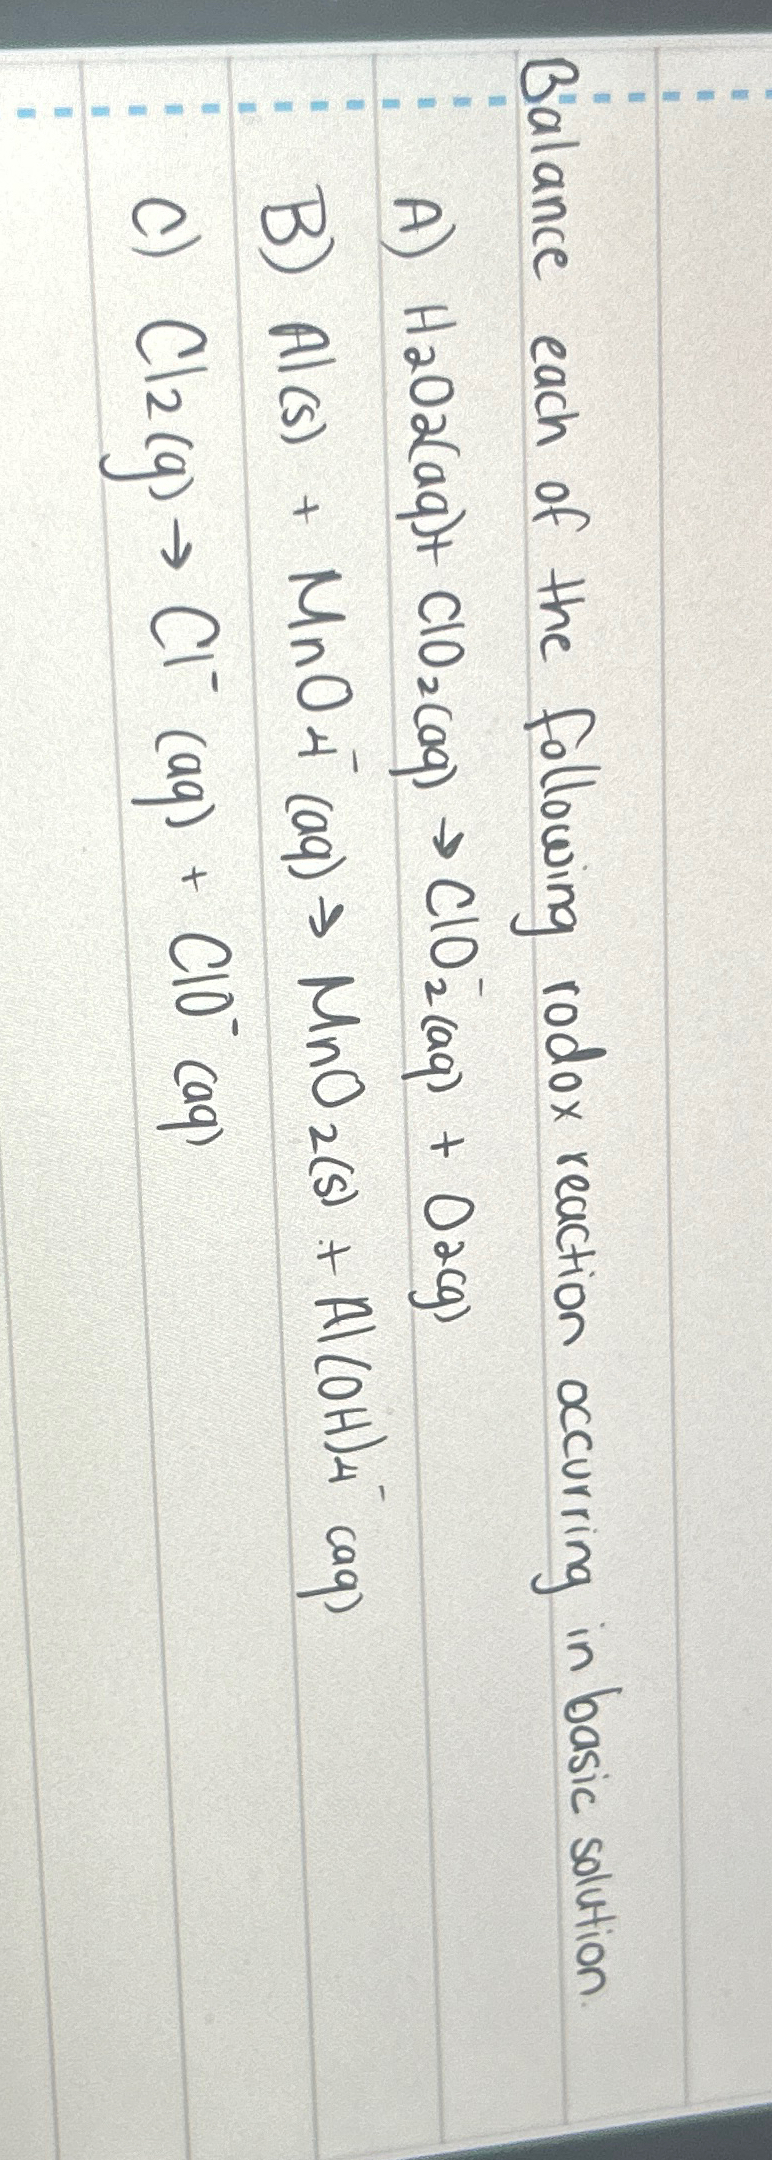 Balance each of the following rodox reaction occurring in basic solution.
A) H2O2(aq)+ ClO2(aq) → ClO2⁻(aq) + O2(g)
B) Al(s) + MnO4⁻(aq) → MnO2(s) + Al(OH)4⁻(aq)
C) Cl2(g) → Cl⁻(aq) + ClO⁻(aq)